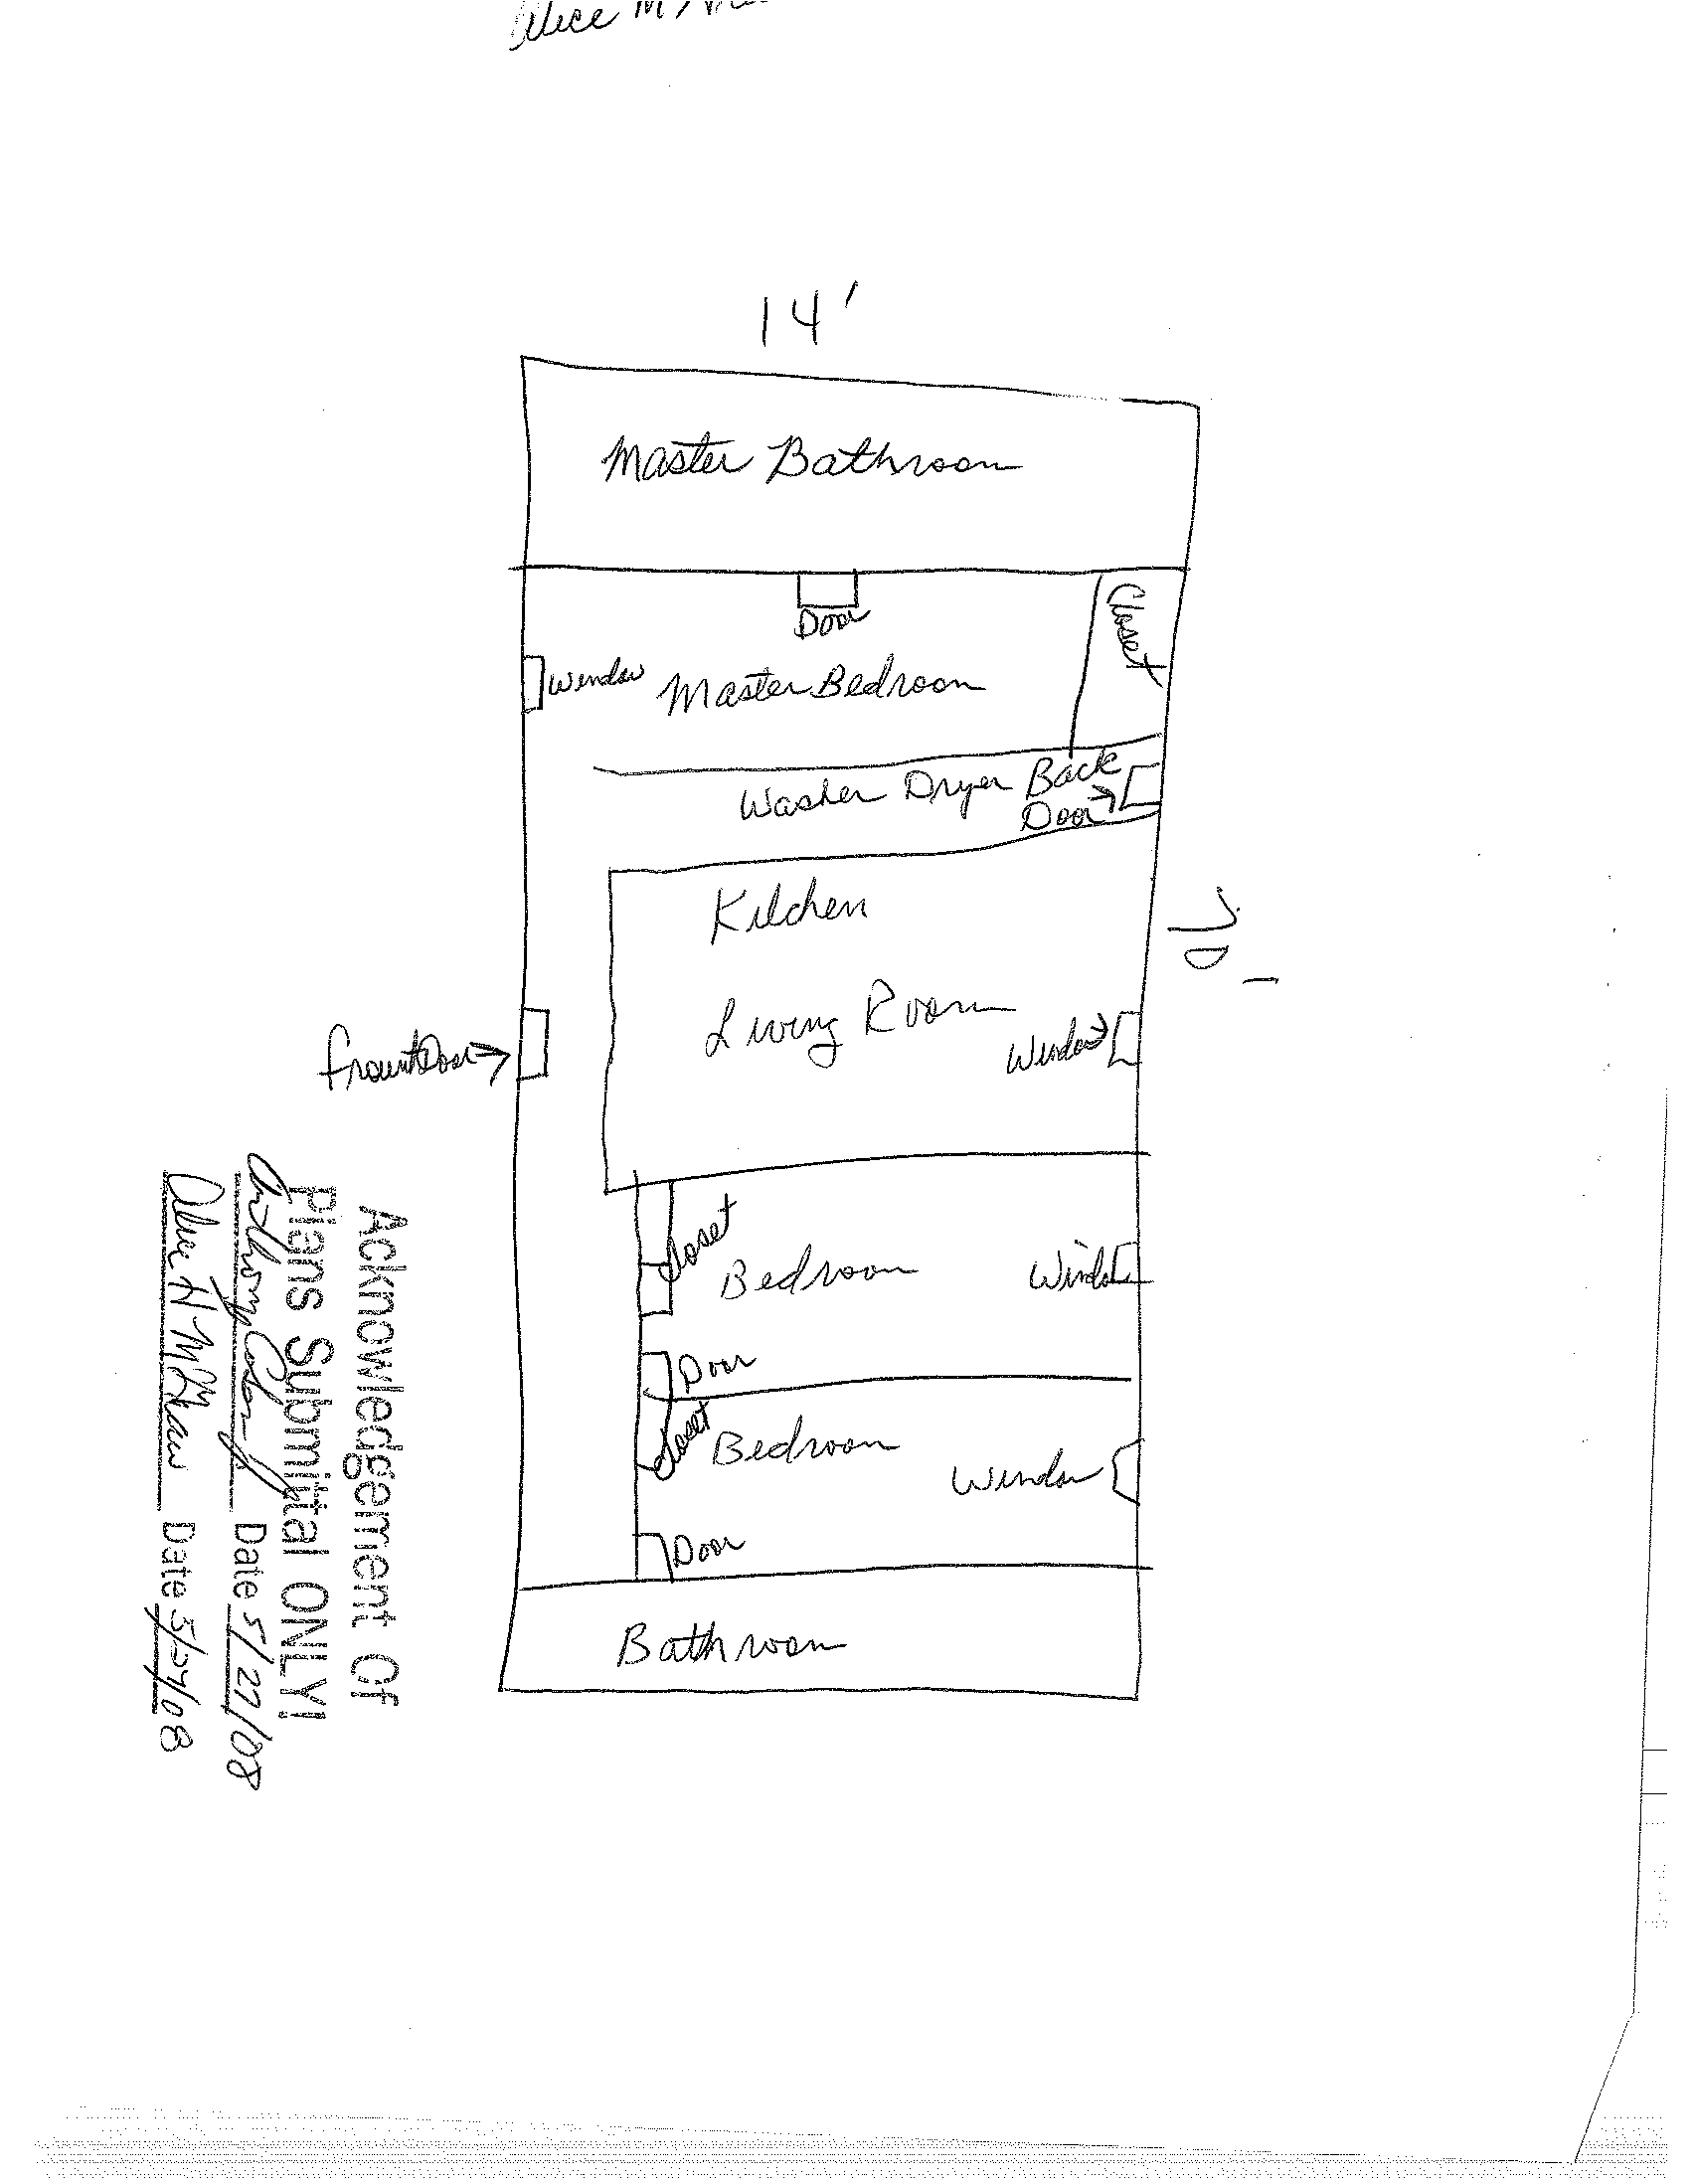 Alice M
14'
Master Bathroom
Door
Closet
Window Master Bedroom
Washer Dryer Back
Door
Kitchen
70'
Living Room
Window
Front Door
Closet
Bedroom
Window
Door
Closet
Bedroom
Window
Door
Bathroom
Acknowledgement Of
Plans Submittal ONLY!
Anthony Date 5/27/08
Alice H McGraw Date 5/27/08